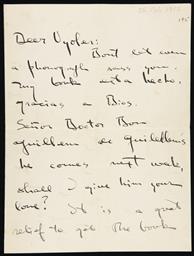 Dear Vyoler:
Don't let even
a phonograph sass you.
My book esta hecho,
gracias a Dios.
Señor Doctor Don
Guillem de Guillettens
he comes next week,
shall I give him your
love? It is a great
relief to get the book